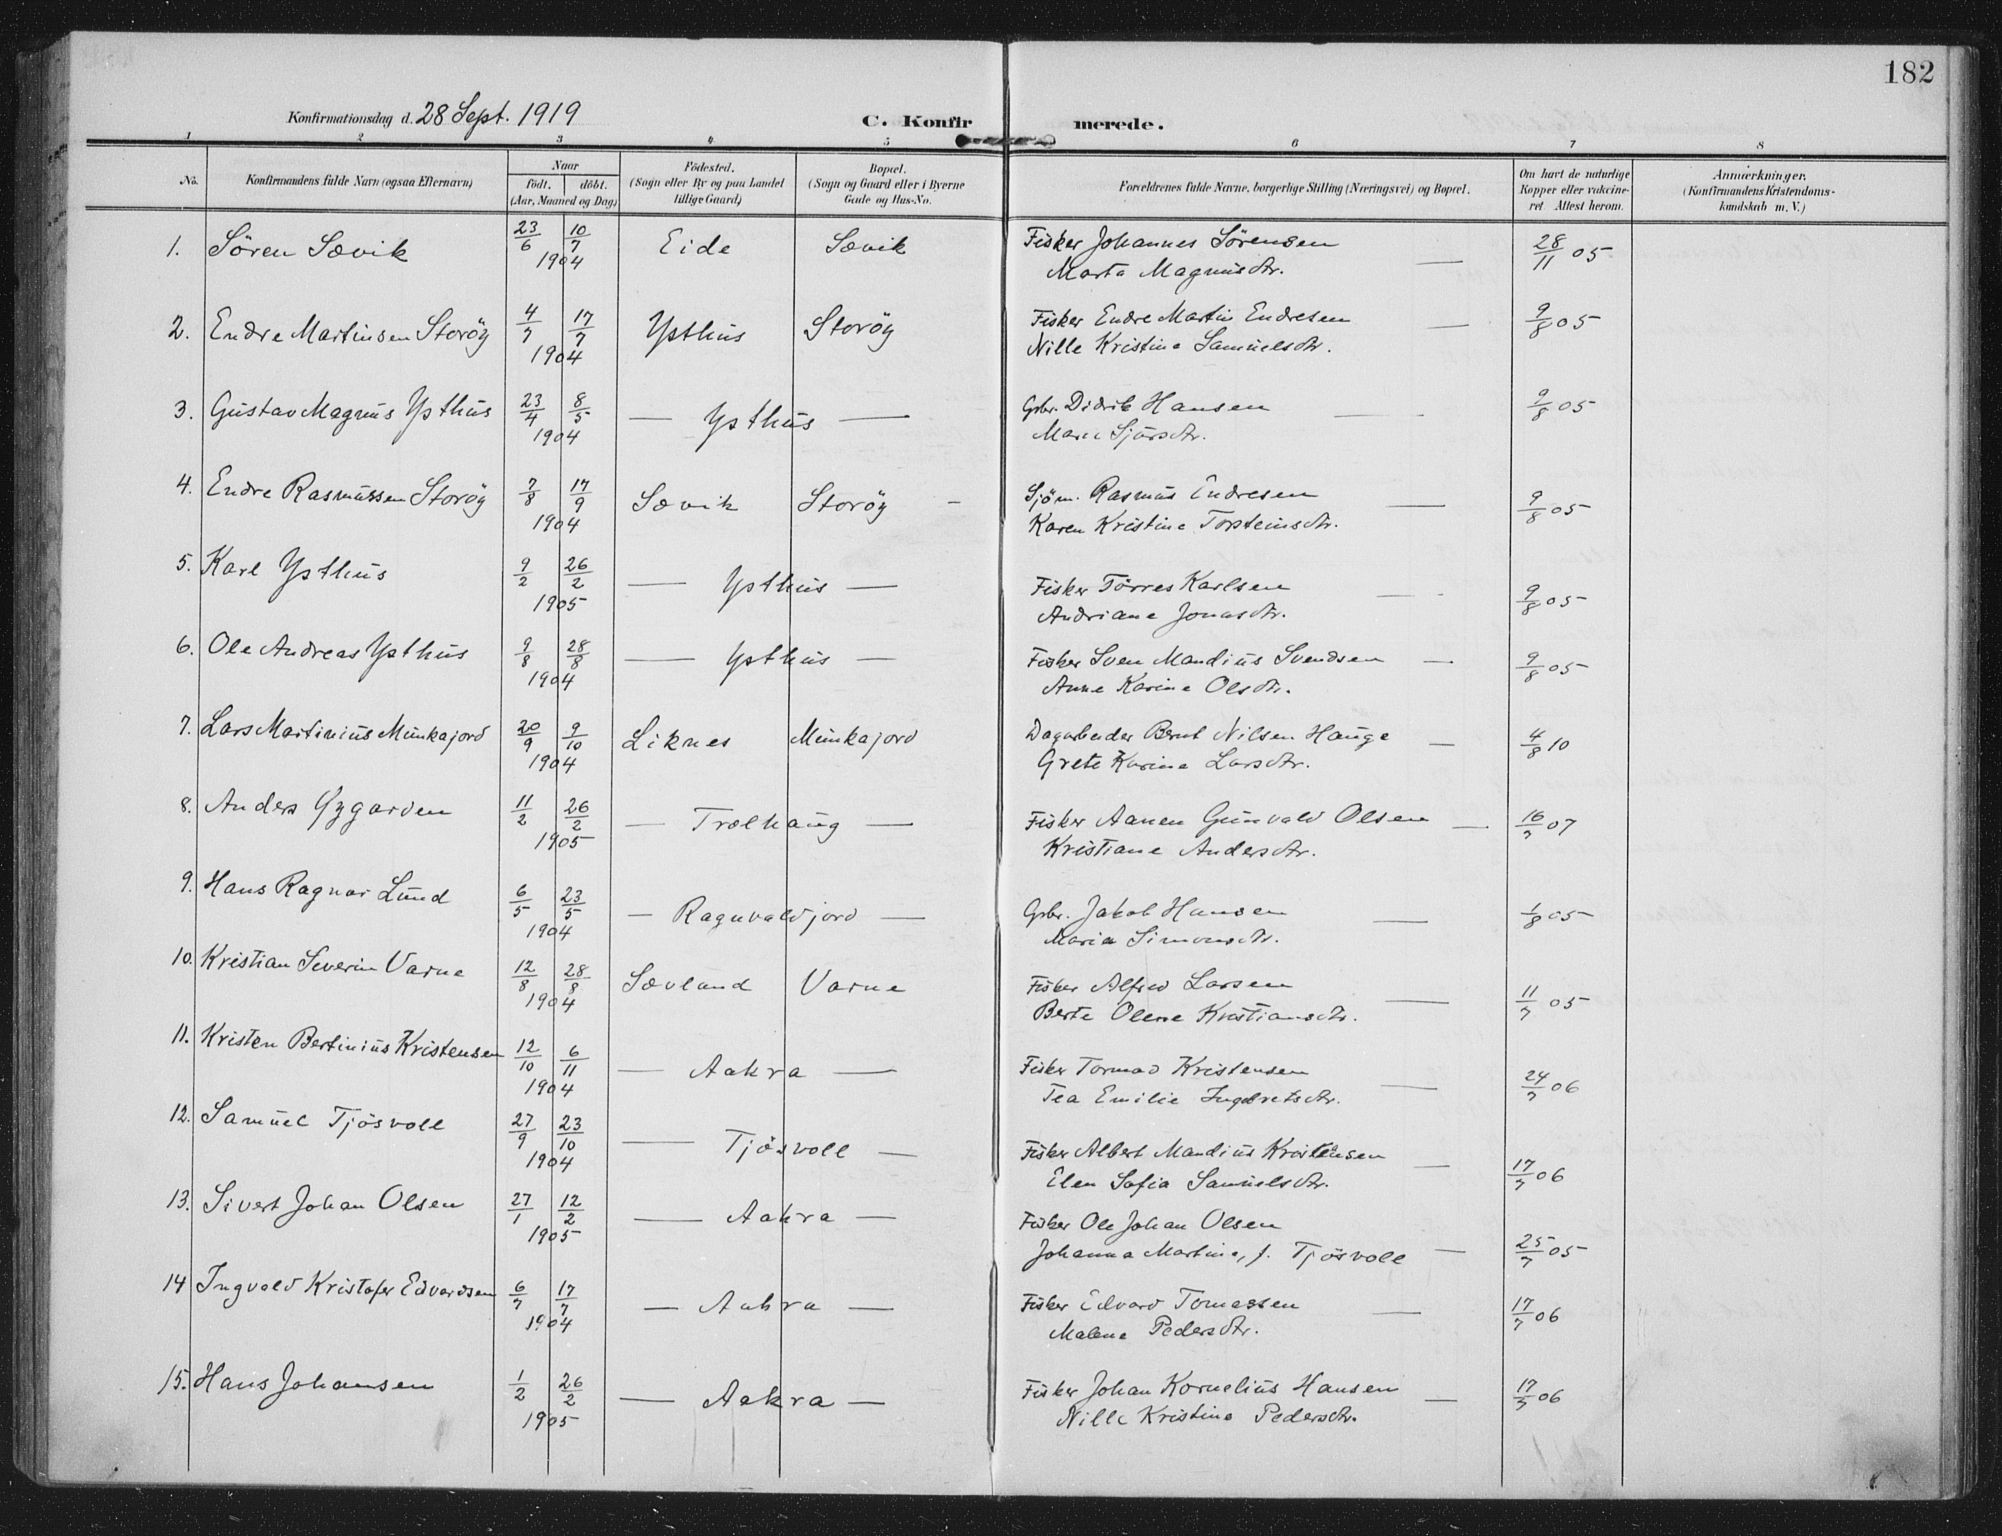 182
Konfirmationsdag d. 28 Sept. 1919
C. Konfirmerede.
1 2 3 4 5 6 7 8
No.
Konfirmandens fulde Navn (ogsaa Efternavn)
Naar
födt. döbt.
(Aar, Maaned og Dag)
Födested.
(Sogn eller By og paa Landet
tillige Gaard)
Bopæl.
(Sogn og Gaard eller i Byerne
Gade og Hus-No.
Forældrenes fulde Navne, borgerlige Stilling (Næringsvei) og Bopæl.
Om havt de naturlige
Kopper eller vakcine-
ret Attest herom.
Anmærkninger.
(Konfirmandens Kristendoms-
kundskab m. V.)
1. Sören Sævik 23/6 10/7 Eide Sævik Fisker Johannes Sörensen — 28/11 05
1904 Marta Magnusdtr.
2. Endre Martinsen Storöy 4/7 17/7 Ysthus Storöy Fisker Endre Martin Endresen — 9/8 05
1904 Nille Kristine Samuelsdtr.
3. Gustav Magnus Ysthus 23/4 8/5 — Ysthus — Gbr. Didrik Hansen — 9/8 05
1904 Marie Sjursdtr.
4. Endre Rasmussen Storöy 7/8 17/9 Sævik Storöy — Sjöm. Rasmus Endresen — 9/8 05
1904 Karen Kristine Torsteinsdtr.
5. Karl Ysthus 9/2 26/2 — Ysthus — Fisker Törres Karlsen — 9/8 05
1905 Andriane Jonasdtr.
6. Ole Andreas Ysthus 9/8 28/8 — Ysthus — Fisker Sven Mandius Svendsen — 9/8 05
1904 Anne Karine Olsdtr.
7. Lars Martinius Munkajord 20/9 9/10 Liknes Munkajord Dagarbeider Bernt Nilsen Hauge — 4/8 10
1904 Grete Karine Larsdtr.
8. Anders Ygarden 11/2 26/2 — Trælhaug — Fisker Aanen Gunvald Olsen — 16/7 07
1905 Kristiane Andersdtr.
9. Hans Ragnar Lund 6/5 23/5 — Ragnvaldjord — Gbr. Jakob Hansen — 1/8 05
1904 Maria Simonsdtr.
10. Kristian Severin Varne 12/8 28/8 Sævland Varne Fisker Alfred Larsen — 11/7 05
1904 Berte Olene Kristiansdtr.
11. Kristen Bertinius Kristensen 12/10 6/11 — Aakra — Fisker Tormod Kristensen — 24/7 06
1904 Tea Emilie Ingebretsdtr.
12. Samuel Tjösvoll 27/9 23/10 — Tjösvoll — Fisker Albert Mandius Kristensen — 17/7 06
1904 Elen Sofia Samuelsdtr.
13. Sivert Johan Olsen 27/1 12/2 — Aakra — Fisker Ole Johan Olsen — 25/7 05
1905 Johanna Martine, f. Tjösvoll
14 Ingvald Kristofer Edvardsen 6/7 17/7 — Aakra — Fisker Edvard Tomassen — 17/7 06
1904 Malene Pedersdtr.
15. Hans Johansen 1/2 26/2 — Aakra — Fisker Johan Kornelius Hansen — 17/7 06
1905 Nille Kristine Pedersdtr.